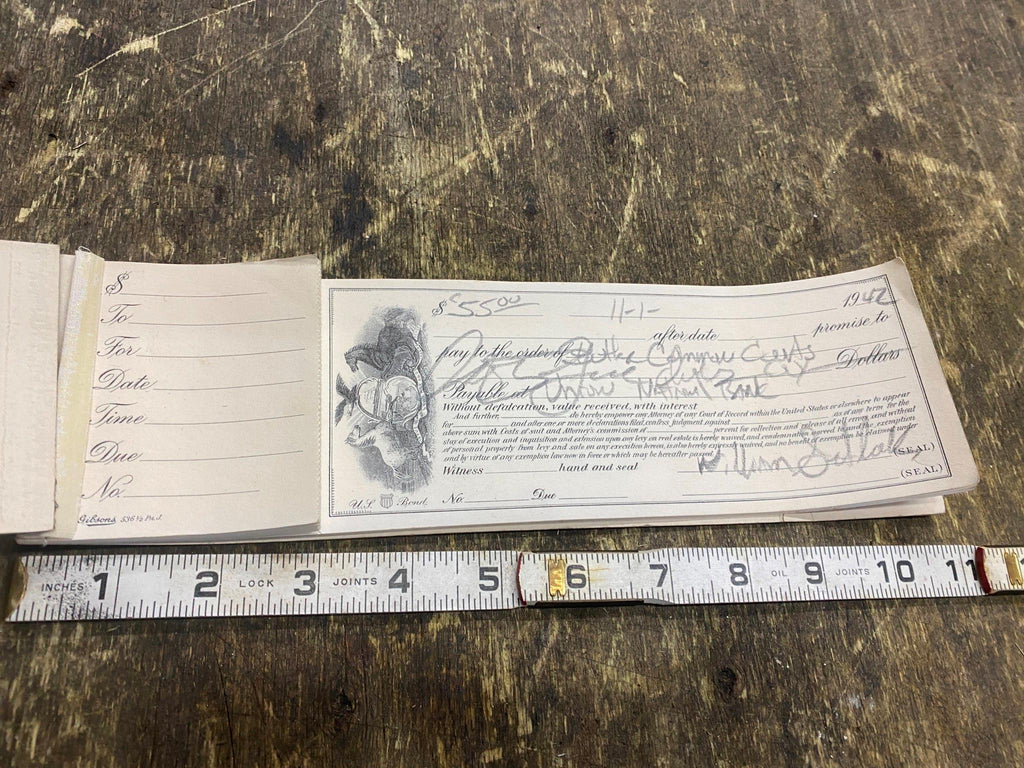 $
To
For
Date
Time
Due
No.
Gibsons 536½ Pa. J.
$ $55.00 11-1- 1942
after date promise to
pay to the order of Butler County
Dollars
Payable at Union National Bank
Without defalcation, value received, with interest
And Further, do hereby empower any Attorney of any Court of Record within the United States or elsewhere to appear
for and after one or more declarations filed, confess judgment against as of any term for the
above sum with Costs of suit and Attorney's commission of percent for collection and release of all errors, and without
stay of execution and inquisition and extension upon any levy on real estate is hereby waived, and condemnation agreed to and the exemption
of personal property from levy and sale on any execution hereon, is also hereby expressed waived, and no benefit of exemption be claimed under
and by virtue of any exemption law now in force or which may be hereafter passed.
William (SEAL)
Witness hand and seal
(SEAL)
U.S. Bond. No. Due
INCHES 1 2 LOCK 3 JOINTS 4 5 6 7 8 OIL 9 JOINTS 10 11